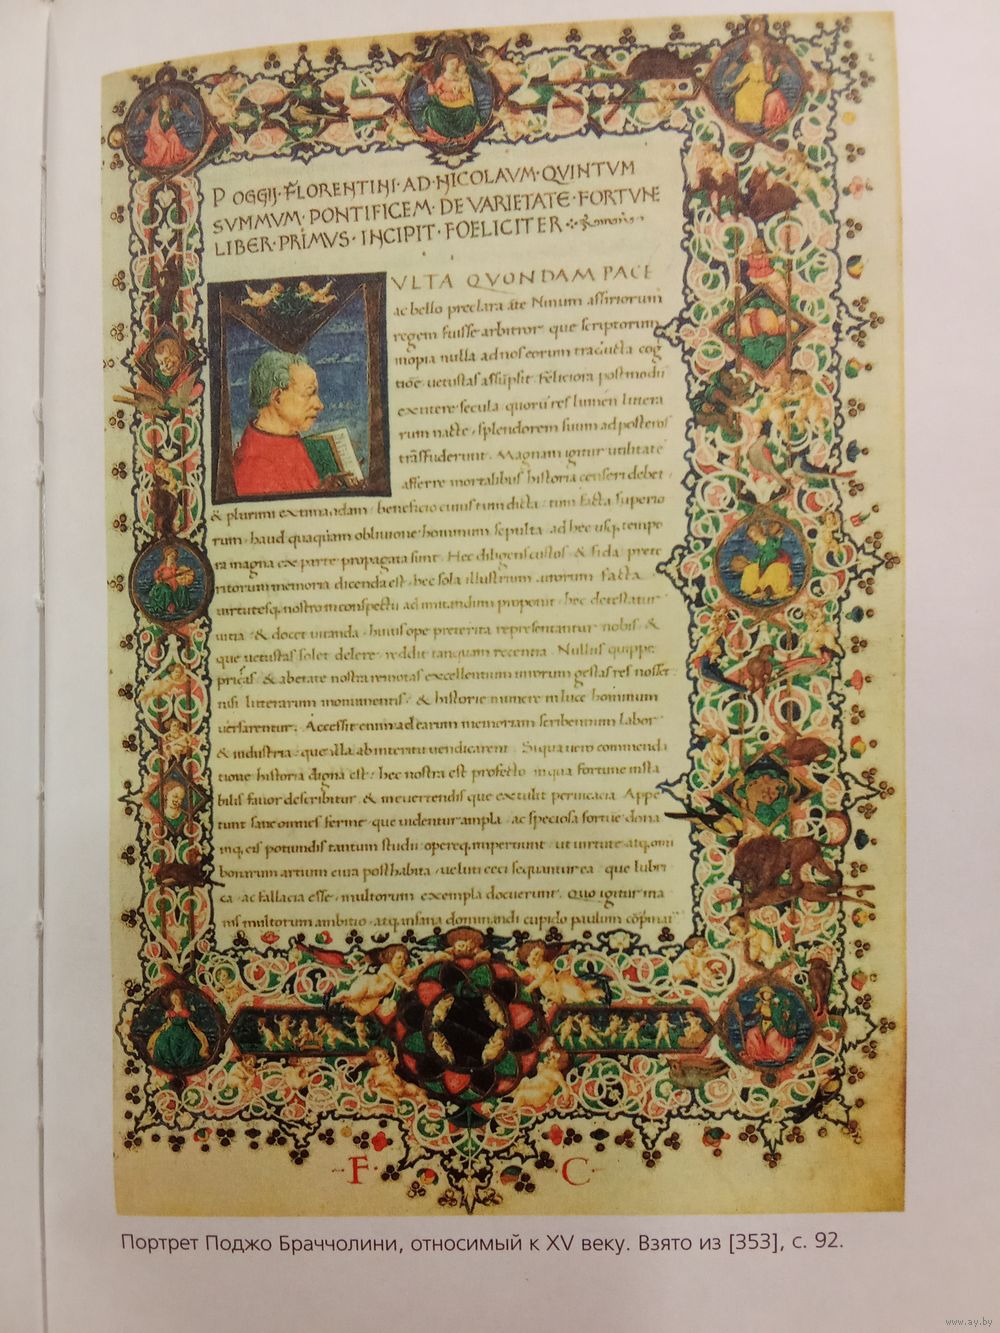 POGGII·FLORENTINI·AD·NICOLAVM·QVINTVM
SVMMVM·PONTIFICEM·DE VARIETATE·FORTVNE
LIBER·PRIMVS·INCIPIT·FOELICITER
VLTA QVONDAM PACE
ac bello preclara ante Ninum assiriorum
regem fuisse arbitror que scriptorum
inopia nulla ad nos eorum traducta cog
vetustas Feliciora postmodū
secula quorū res lumen littera
rum nacte splendorem suum ad posteros
trāsfuderunt. Magnam igitur utilitatē
afferre mortalibus historia censeri debet
& plurimi beneficio cuius tum dicta tum facta superio
rum haud quaquam oblivione hominum sepulta ad hec usq, tempo
ra magna ex parte propagata sunt. Hec diligens custos & fida prete
ritorum memoria dicenda est hec sola illustrium uirorum facta
uirtutesq, nostro in conspectu ad imitandum proponit hec detestatur
uitia & docet uitanda huius ope preterita representantur nobis &
que uetustas solet delere reddit tanquam recentia. Nullus quippe
& ab etate nostra remotas excellentium uirorum gestas res nosset
nisi litterarum monumentis & historie munere in luce hominum
uersarentur. Accessit enim ad earum memoriam scribentium labor
& industria que illa ab interitu uendicarent. Siqua uero commenda
tione historia digna est hec nostra est profecto in qua fortune insta
bilis fauor describitur & in euertendis que extulit peruicacia. Appe
tunt sane omnes ferme que uidentur ampla ac speciosa fortūe dona
inq, eis potiundis tantum studii opereq, impertiunt ut uirtute atq, omi
bonarum artium cura posthabita ueluti ceci sequantur ea que lubri
ca ac fallacia esse multorum exempla docuerunt. Quo igitur ina
nis multorum ambitio atq, insana dominandi cupido paulum
F· C
Портрет Поджо Браччолини, относимый к XV веку. Взято из [353], с. 92.
www.ay.by